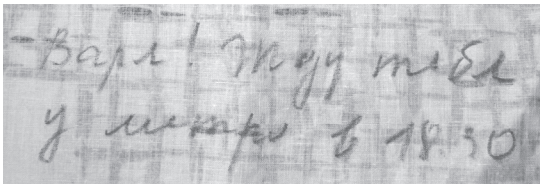 - Варя! Жду тебя
у метро в 18.30